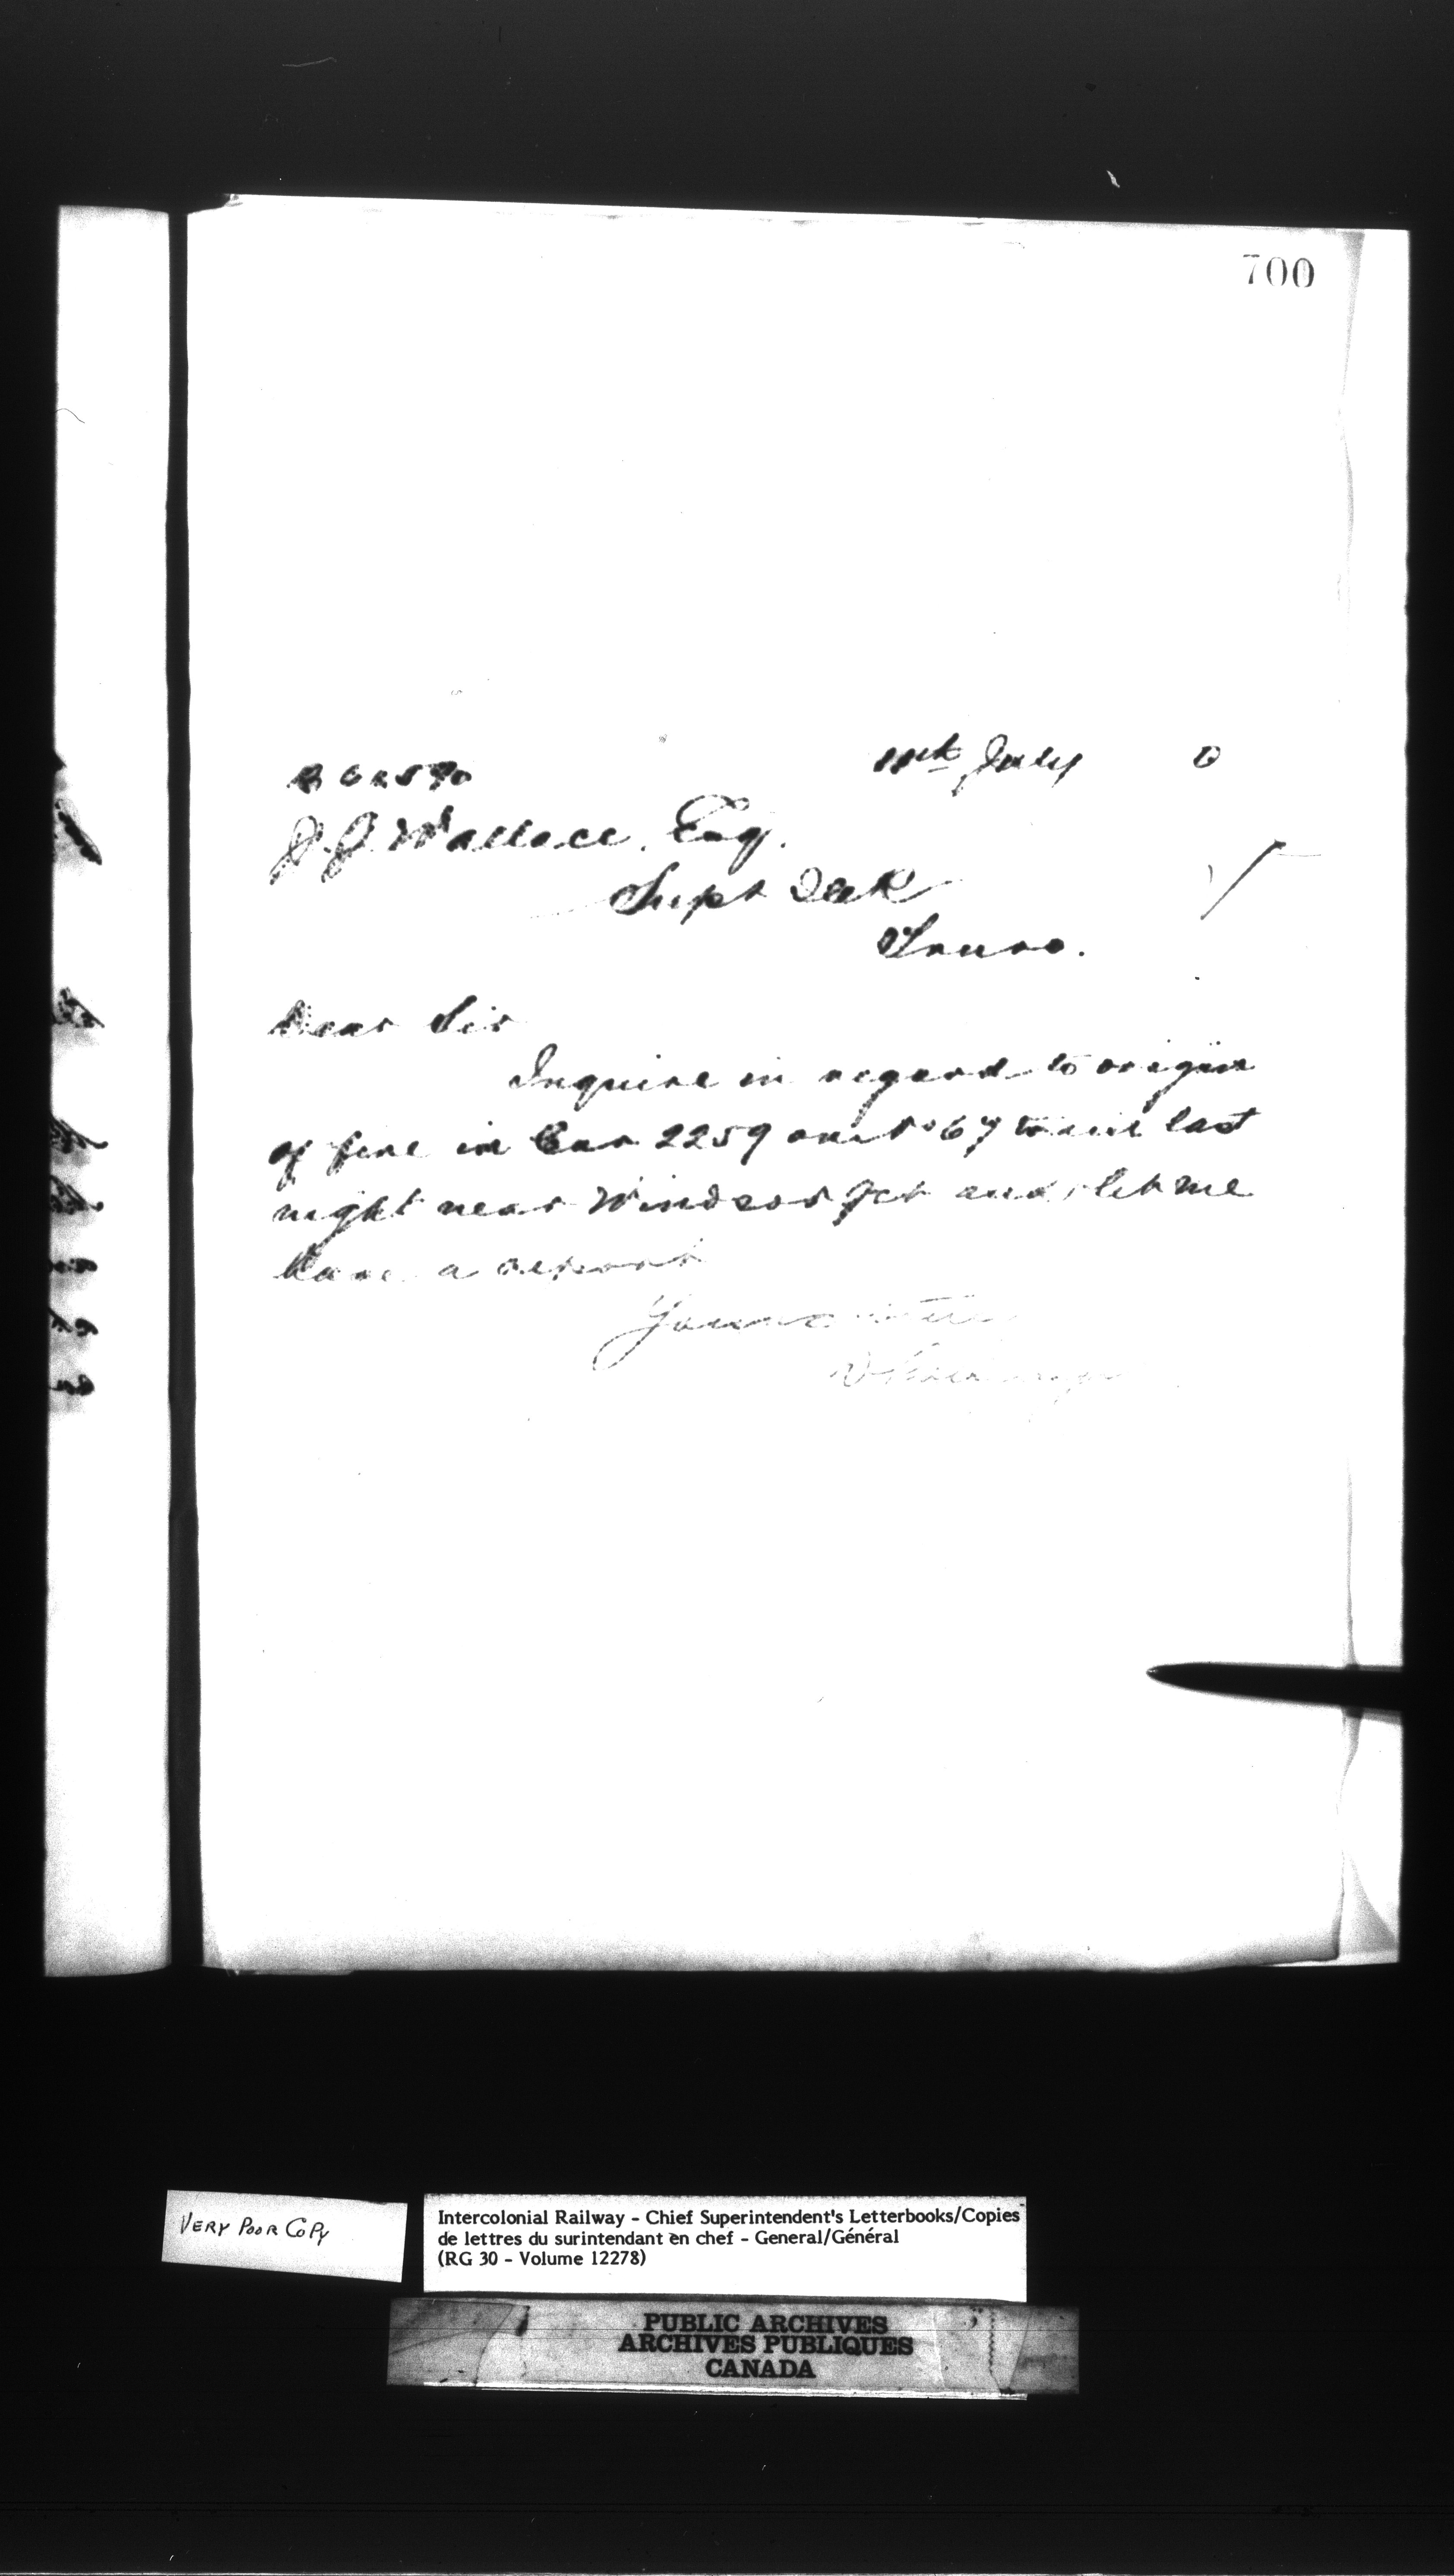 700
11th July 0
J. J. Wallace, Esq.
Supt
Truro.
Dear Sir
Inquire in regard to origin
of fire in Car 2259 on No 67 train last
night near Windsor Jct and let me
have a report
Yours truly
VERY POOR COPY
Intercolonial Railway - Chief Superintendent's Letterbooks/Copies
de lettres du surintendant en chef - General/Général
(RG 30 - Volume 12278)
PUBLIC ARCHIVES
ARCHIVES PUBLIQUES
CANADA